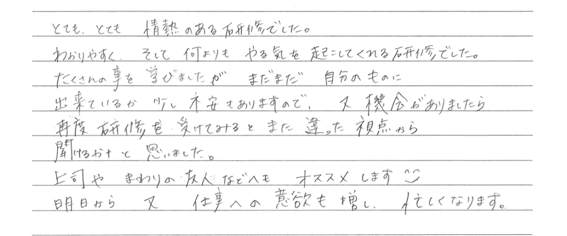 とても、とても 情熱のある研修でした。
わかりやすく、そして 何よりも やる気を 起こしてくれる研修でした。
たくさんの事を 学びましたが まだまだ 自分のものに
出来ているか 少し 不安もありますので、又 機会がありましたら
再度 研修を 受けてみると また 違った 視点から
聞けるかナと 思いました。
上司や まわりの友人などへも オススメします
明日から 又 仕事への 意欲も 増し、忙しくなります。